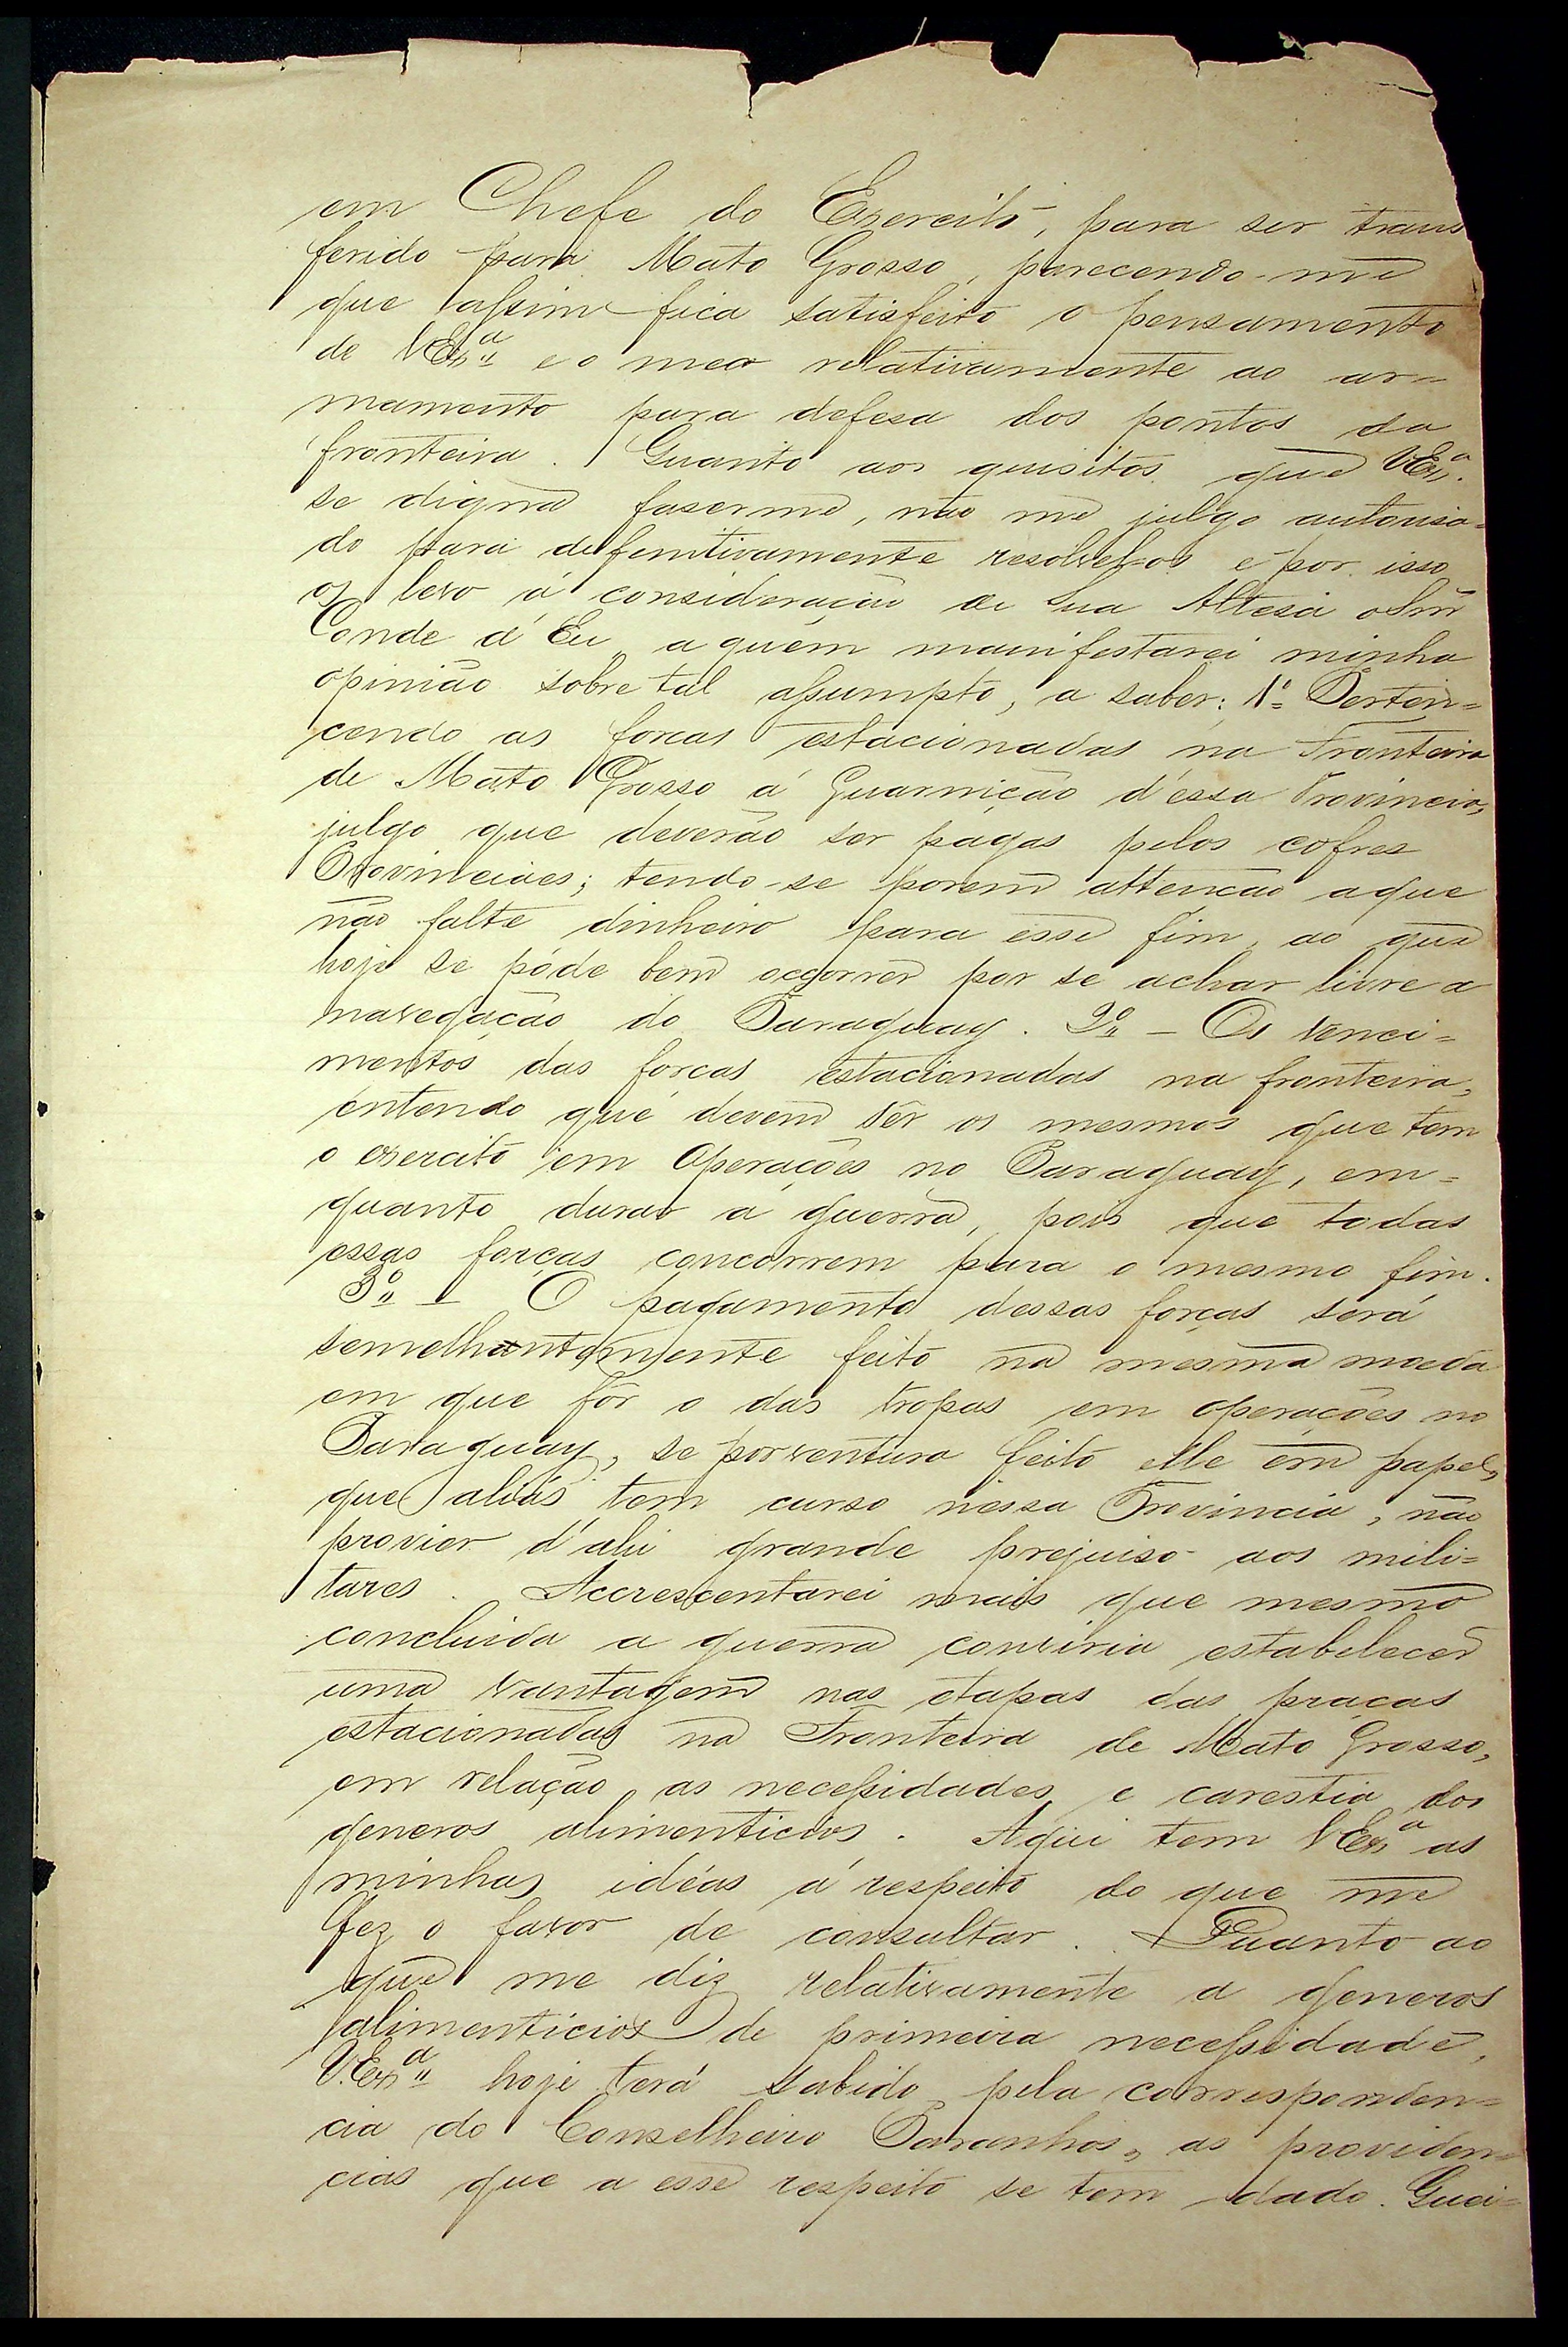 em Chefe do Exercito, para ser trans
ferido para Mato Grosso, parecendo-me
que assim fica satisfeito o pensamento
de VExª e o meo relativamente ao ar=
mamento para defesa dos pontos da
fronteira. Quanto aos quisitos que VExª.
se digna faserme, não me julgo autorisa=
do para deffinitivamente resolvel-os e por isso
os levo á consideração de Sua Altesa o Snr̃
Conde d'Eu, a quem manifestarei minha
opinião sobre tal assumpto, a saber: 1º Perten=
cendo as forcas estacionadas na Fronteira
de Mato Grosso á Guarnição d'essa Provincia,
julgo que deverão ser pagas pelos cofres
Provinciaes; tendo-se porem attenção a que
não falte dinheiro para esse fim, ao que
hoje se póde bem occorrer por se achar livre a
navegação do Paraguay. 2º - Os venci=
mentos das forcas estacionadas na fronteira,
entendo que devem sêr os mesmos que tem
o exercito em Operações no Paraguay, em=
quanto durar a guerra, pois que todas
essas forças concorrem para o mesmo fim.
3º - O pagamento dessas forças será
semelhantemente feito na mesma moeda
em que fôr o das tropas em operações no
Paraguay, se porventura feito elle em papel,
que aliás tem curso nessa Provincia, não
provier d'ahi grande prejuiso aos mili=
tares. Accrescentarei mais que mesmo
concluida a guerra conviria estabelecer
uma vantagem nas etapas das praças
estacionadas na Fronteira de Mato Grosso,
em relação as necessidades e carestia dos
generos alimenticios. Aqui tem VExª as
minhas idéas á respeito do que me
fez o favor de consultar. Quanto ao
que me diz relativamente a generos
alimenticios de primeira necessidade,
V.Exª hoje terá sabido pela corresponden=
cia do Conselheiro Paranhos, as providen=
cias que a esse respeito se tem dado. Quei=